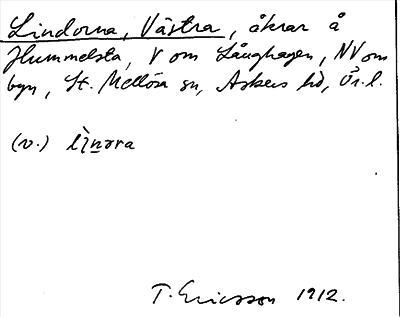 Lindorna, Västra, åkrar å
Hummelsta, V om Långhagen, NV om
byn, St. Mellösa sn, Askers hd, Ör. l.
(v.) lìnəra
T. Ericsson 1912.